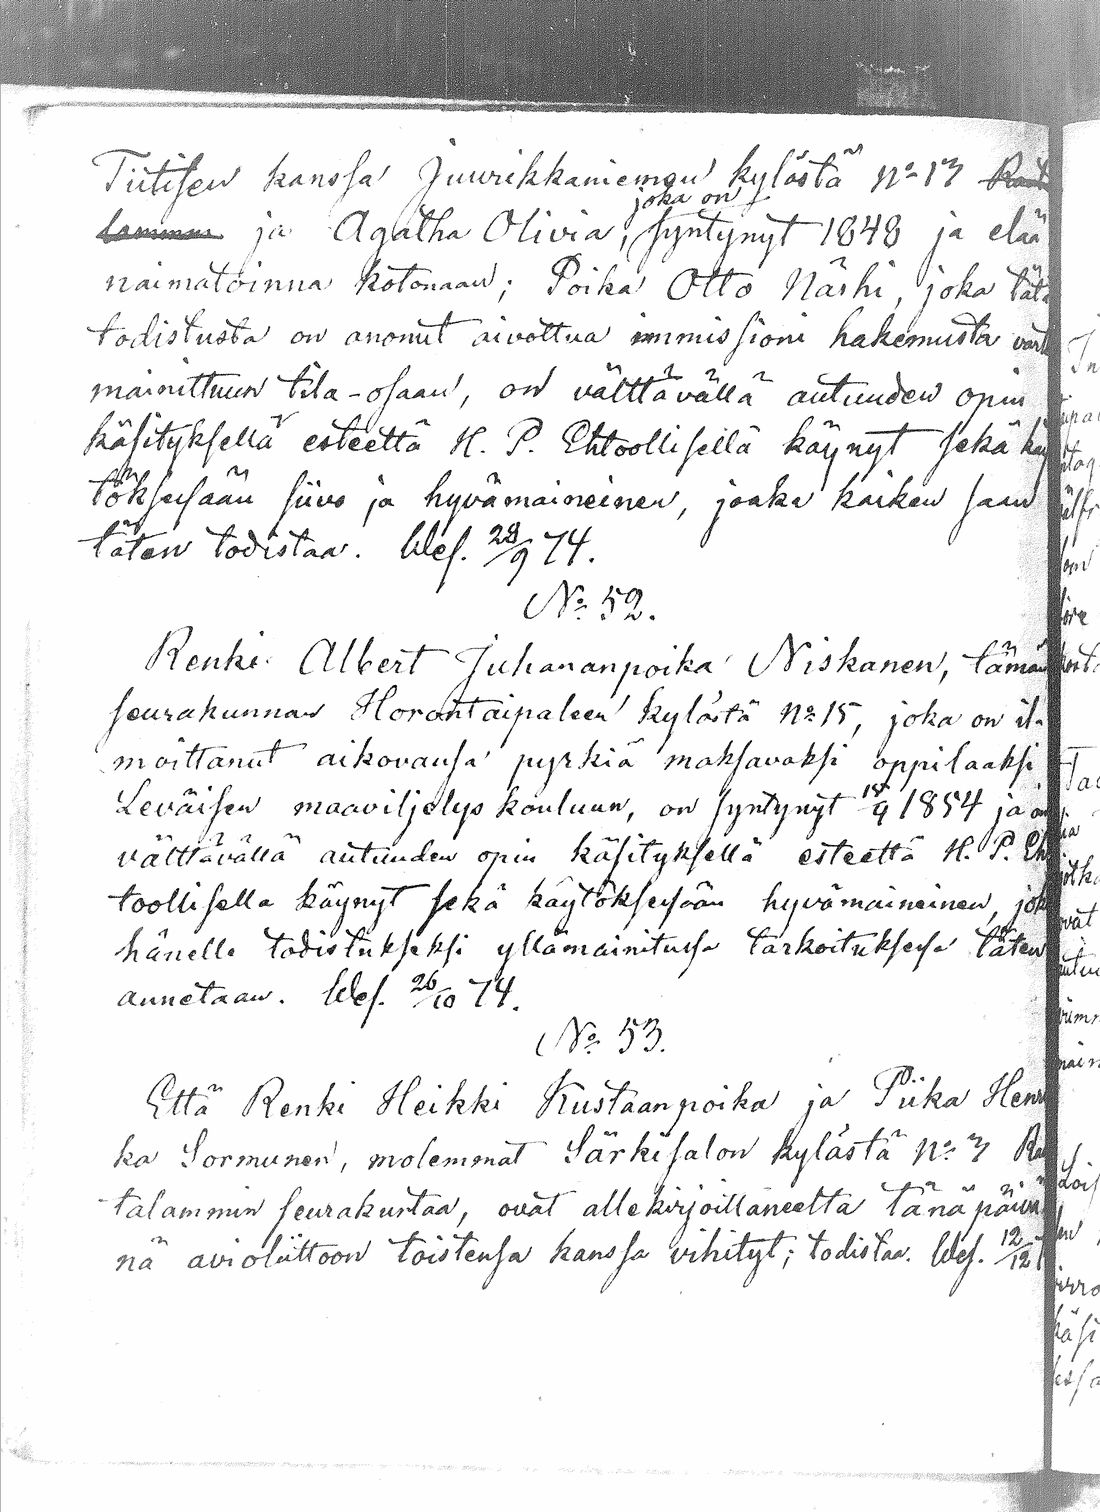 Tiitisen kanssa Juurikkaniemen kylästä No 13
ja Agatha Olivia, joka on syntynyt 1848 ja elää
naimatoinna kotonaan; Poika Otto Närhi, joka tätä
todistusta on anonut aivottua immissioni hakemusta
mainittuun tila-osaan, on välttävällä autuuden opin
käsityksellä esteettä H. P. Ehtoollisella käynyt sekä käy
töksessään siivo ja hyvämaineinen, jonka kaiken saan
täten todistaa. Wes. 29/9 74.
No 52.
Renki Albert Juhananpoika Niskanen, tämän
seurakunnan Horontaipaleen kylästä No 15, joka on il-
moittanut aikovansa pyrkiä maksavaksi oppilaaksi
Leväisen maaviljelys kouluun, on syntynyt 1854 ja on
välttävällä autuuden opin käsityksellä esteettä H. P. Eh
toollisella käynyt sekä käytöksessään hyvämaineinen, jok
hänelle todistukseksi yllämainitussa tarkoituksessa täten
annetaan. Wes. 26/10 74.
No 53.
Että Renki Heikki Kustaanpoika ja Piika Henri
ka Sormunen, molemmat Särkisalon kylästä No 3 Rau
talammin seurakuntaa, ovat allekirjoittaneelta tänäpäivä
nä avioliittoon toistensa kanssa vihityt; todistaa. Wes. 12/12